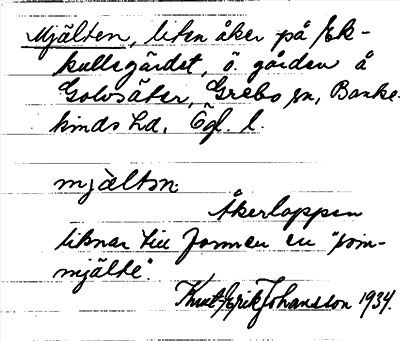 Mjälten, liten åker på Ek-
kullsgärdet, ö. gården å
Golvsäter, Grebo sn, Banke-
kinds hd, Ögl. l.
mjältən.
Åkerlappen
liknar till formen en "som-
mjälte".
Knut-Erik Johansson 1934.